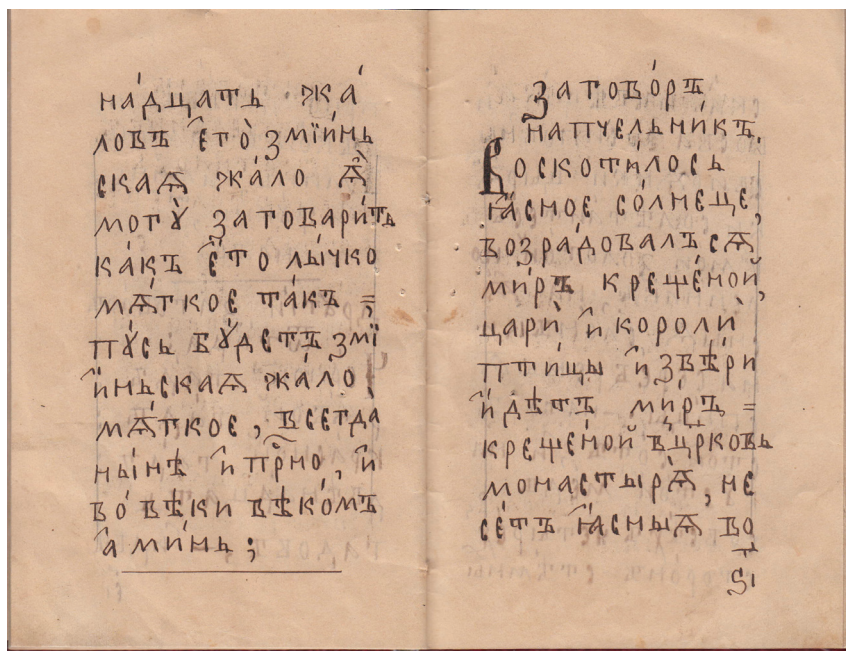 на́дцать жа́
ловъ є҆то̀ змїи́нь
скаѧ жа́ло ѧ҆̀
могꙋ̀ заговари́ть
ка́къ є҆́то лы́чко
мѧ́гкоє та́къ =
пꙋ́сь бꙋ́детъ змї
и҆́ньскаѧ жа́ло
мѧ́гкоє, всегда
ны́нѣ и҆ при҇но, и҆
во́ вѣки вѣко́мъ
а҆ми́нь;
Загово́ръ
на пчельни́къ.
Воскоти́лось
ꙗ҆́сноє со́лнеще,
возра́довалъсѧ
ми́ръ креще́ной,
царѝ и҆ королѝ
пти́цы и҆ звѣ́ри
и҆́дѣтъ ми́ръ =
креще́ной в̾ цр҃ковь
монастырѧ̀, не
се́тъ ꙗ҆́сныѧ во
ѕ҃і